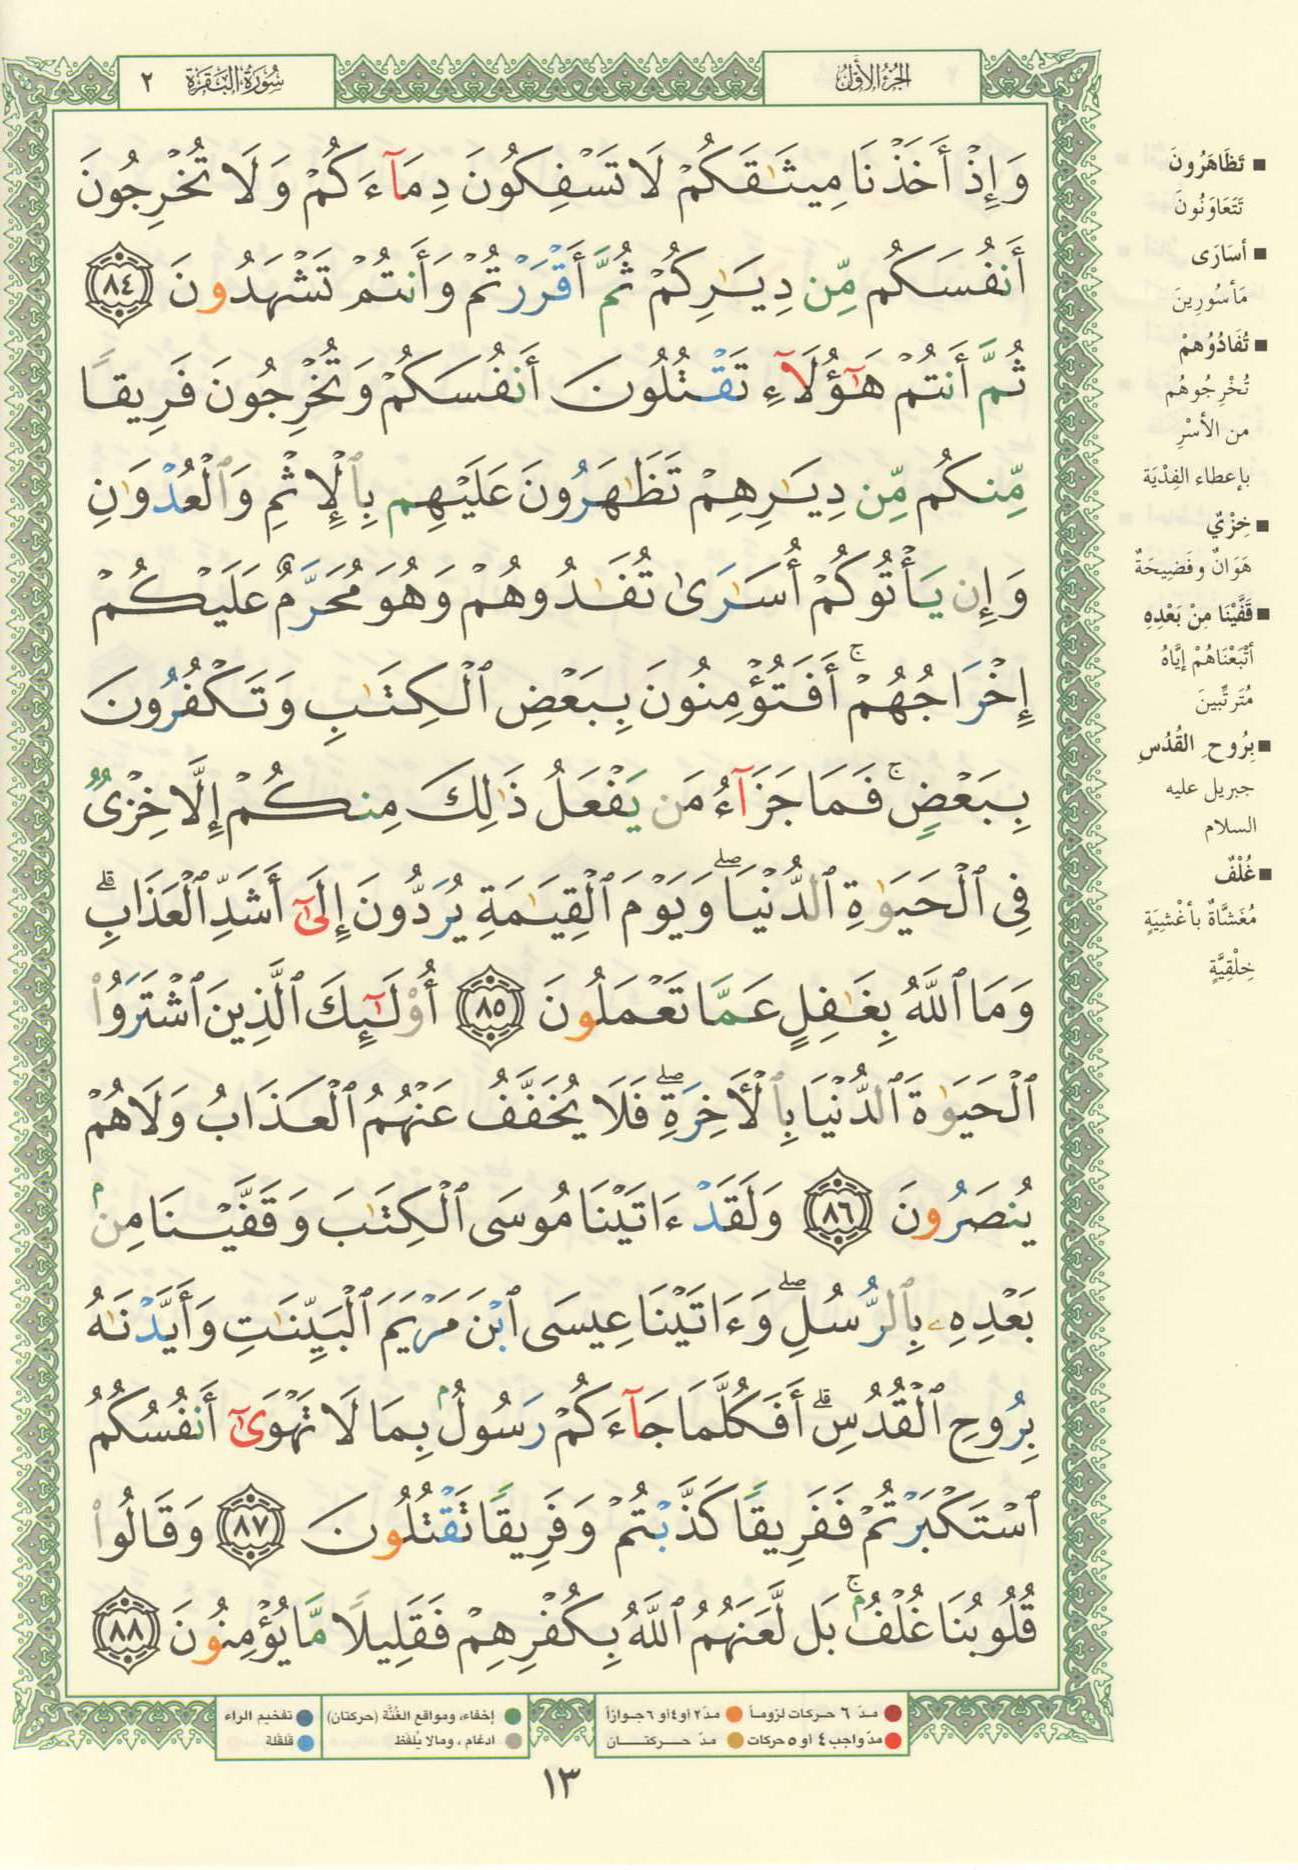 الجزء الأول
سورة البقرة ٢
وَإِذْ أَخَذْنَا مِيثَٰقَكُمْ لَا تَسْفِكُونَ دِمَآءَكُمْ وَلَا تُخْرِجُونَ
أَنفُسَكُم مِّن دِيَٰرِكُمْ ثُمَّ أَقْرَرْتُمْ وَأَنتُمْ تَشْهَدُونَ ٨٤
ثُمَّ أَنتُمْ هَٰٓؤُلَآءِ تَقْتُلُونَ أَنفُسَكُمْ وَتُخْرِجُونَ فَرِيقًا
مِّنكُم مِّن دِيَٰرِهِمْ تَظَٰهَرُونَ عَلَيْهِم بِٱلْإِثْمِ وَٱلْعُدْوَٰنِ
وَإِن يَأْتُوكُمْ أُسَٰرَىٰ تُفَٰدُوهُمْ وَهُوَ مُحَرَّمٌ عَلَيْكُمْ
إِخْرَاجُهُمْ ۚ أَفَتُؤْمِنُونَ بِبَعْضِ ٱلْكِتَٰبِ وَتَكْفُرُونَ
بِبَعْضٍ ۚ فَمَا جَزَآءُ مَن يَفْعَلُ ذَٰلِكَ مِنكُمْ إِلَّا خِزْىٌ
فِى ٱلْحَيَوٰةِ ٱلدُّنْيَا ۖ وَيَوْمَ ٱلْقِيَٰمَةِ يُرَدُّونَ إِلَىٰٓ أَشَدِّ ٱلْعَذَابِ ۗ
وَمَا ٱللَّهُ بِغَٰفِلٍ عَمَّا تَعْمَلُونَ ٨٥ أُو۟لَٰٓئِكَ ٱلَّذِينَ ٱشْتَرَوُا۟
ٱلْحَيَوٰةَ ٱلدُّنْيَا بِٱلْأٓخِرَةِ ۖ فَلَا يُخَفَّفُ عَنْهُمُ ٱلْعَذَابُ وَلَا هُمْ
يُنصَرُونَ ٨٦ وَلَقَدْ ءَاتَيْنَا مُوسَى ٱلْكِتَٰبَ وَقَفَّيْنَا مِنۢ
بَعْدِهِۦ بِٱلرُّسُلِ ۖ وَءَاتَيْنَا عِيسَى ٱبْنَ مَرْيَمَ ٱلْبَيِّنَٰتِ وَأَيَّدْنَٰهُ
بِرُوحِ ٱلْقُدُسِ ۗ أَفَكُلَّمَا جَآءَكُمْ رَسُولٌۢ بِمَا لَا تَهْوَىٰٓ أَنفُسُكُمُ
ٱسْتَكْبَرْتُمْ فَفَرِيقًا كَذَّبْتُمْ وَفَرِيقًا تَقْتُلُونَ ٨٧ وَقَالُوا۟
قُلُوبُنَا غُلْفٌۢ ۚ بَل لَّعَنَهُمُ ٱللَّهُ بِكُفْرِهِمْ فَقَلِيلًا مَّا يُؤْمِنُونَ ٨٨
■ تَظَاهَرُونَ
تَتَعَاوَنُونَ
■ أسَارَى
مَأسُورِينَ
■ تُفَادُوهُمْ
تُخْرِجُوهُم
من الأسْرِ
بإعطاء الفِدْيَة
■ خِزْيٌ
هَوَانٌ وفَضِيحَةٌ
■ قَفَّيْنَا مِنْ بَعْدِهِ
أتْبَعْنَاهُمْ إيَّاهُ
مُتَرتِّبينَ
■ بِرُوحِ القُدُسِ
جبريل عليه
السلام
■ غُلْفٌ
مُغَشَّاةٌ بأغْشِيَةٍ
خِلْقِيَّةٍ
مدّ ٦ حركات لزوماً مدّ ٢ أو ٤ أو ٦ جوازاً
مدّ واجب ٤ أو ٥ حركات مدّ حركتان
إخفاء، ومواقع الغُنَّة (حركتان)
ادغام، ومالا يُلفظ
تفخيم الراء
قلقلة
١٣